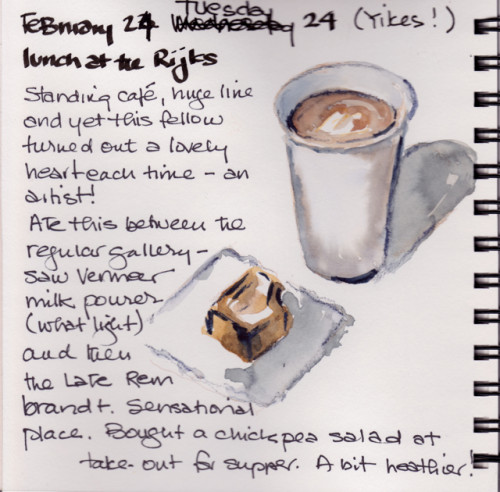 February 24 Tuesday 24 (Yikes!)
lunch at the Rijks
Standing café, huge line
and yet this fellow
turned out a lovely
heart each time - an
artist!
Ate this between the
regular gallery -
saw Vermeer
milk pourer
(what light)
and then
the Late Rem
brandt. Sensational
place. Bought a chickpea salad at
take-out for supper. A bit healthier!